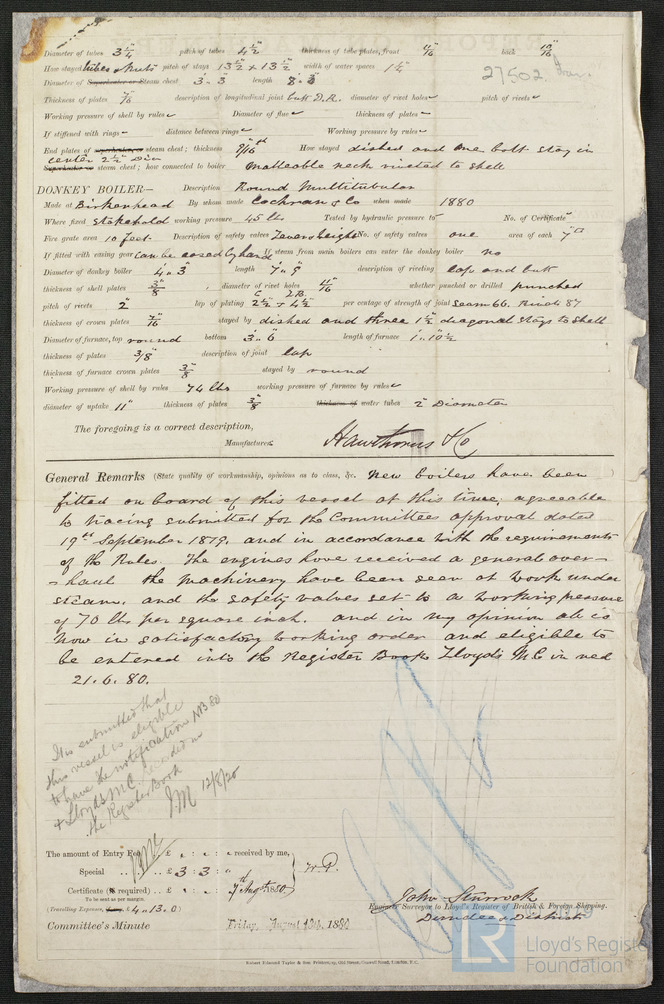 Diameter of tubes 3¼" pitch of tubes 4½" thickness of tube plates, front 11/16" back 10/16"
How stayed tubes & nuts pitch of stays 13½" x 13½" width of water spaces 1¼"
Diameter of Superheater or Steam chest 3'. 3" length 8'. 3"
27502 Iron.
Thickness of plates 7/16" description of longitudinal joint butt D.R. diameter of rivet holes " pitch of rivets "
Working pressure of shell by rules " Diameter of flue " thickness of plates "
If stiffened with rings " distance between rings " Working pressure by rules "
End plates of superheater or steam chest; thickness 9/16" How stayed dished and one bolt stay in
center 2½" Dia
Superheater or steam chest; how connected to boiler malleable neck riveted to shell
DONKEY BOILER— Description Round Multitubular
Made at Birkenhead By whom made Cochran & Co when made 1880
Where fixed Stokehold working pressure 45 lbs Tested by hydraulic pressure to " No. of Certificate "
Fire grate area 10 feet. Description of safety valves Levers & weights No. of safety valves one area of each 7"
If fitted with easing gear can be eased by hand If steam from main boilers can enter the donkey boiler no
Diameter of donkey boiler 4'. 3" length 7'. 9" description of riveting lap and butt
thickness of shell plates 3/8" diameter of rivet holes 11/16" whether punched or drilled punched
pitch of rivets 2" lap of plating 2½" & 4½" per centage of strength of joint Seam 66.
thickness of crown plates 7/16" stayed by dished and three 1½" diagonal stays to shell
Diameter of furnace, top round bottom 3'. 6" length of furnace 1'. 10½"
thickness of plates 3/8" description of joint lap
thickness of furnace crown plates 3/8" stayed by round
Working pressure of shell by rules 74 lbs working pressure of furnace by rules "
diameter of uptake 11" thickness of plates 3/8" thickness of water tubes 2" Diameter
The foregoing is a correct description,
Manufacturers Hawthorns & Co
General Remarks (State quality of workmanship, opinions as to class, &c. New boilers have been
fitted on board of this vessel at this time, agreeable
to tracing submitted for the Committees approval dated
19th September 1879. and in accordance with the requirements
of the Rules. The engines have received a general over-
-haul the machinery have been seen at work under
steam. and the safety valves set to a working pressure
of 70 lbs per square inch. and in my opinion all is
now in satisfactory working order and eligible to
be entered into the Register Book Lloyd's M.C in red
21. 6. 80.
It is submitted that
this vessel is eligible
to have the notification NB 80
& Lloyds MC recorded in
the Register Book
JM 12/8/80
The amount of Entry Fee .. £ " : " : " received by me,
Special .. £ 3 : 3 : "
Certificate (if required) .. £ " : " : " 7th Augst 1880
To be sent as per margin.
(Travelling Expenses, if any, £ 4. 13. 0)
John Sturrock
Engineer Surveyor to Lloyd's Register of British & Foreign Shipping.
Dundee & District
Committee's Minute Friday, August 13th, 1880
LR Lloyd's Register
Foundation